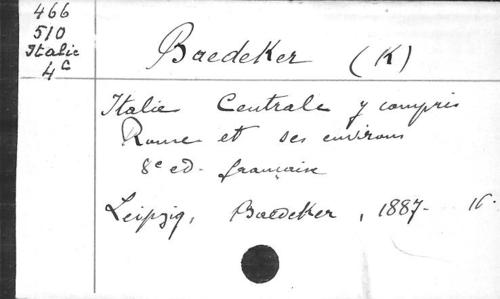 466
510
Italie
4c
Baedeker (K)
Italie Centrale y compris
Rome et ses environs
8e ed. française
Leipzig, Baedeker, 1887- 16.